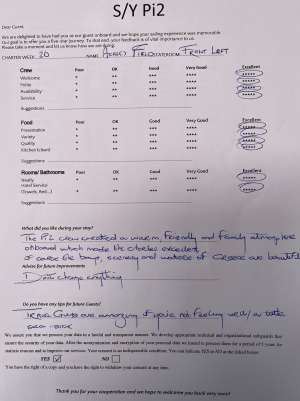 S/Y Pi2
Dear Guest,
We are delighted to have had you as our guest onboard and we hope your sailing experience was memorable.
Our goal is to offer you a five star journey. To that end, your feedback is of vital importance to us.
Please take a moment and let us know how we are doing.
CHARTER WEEK: 20 NAME: FRONT LEFT
Crew Poor OK Good Very Good Excellent
Welcome * ** *** **** *****
Polite * ** *** **** *****
Availability * ** *** **** *****
Service * ** *** **** *****
Suggestions:
Food Poor OK Good Very Good Excellent
Presentation * ** *** **** *****
Variety * ** *** **** *****
Quality * ** *** **** *****
Kitchen Island * ** *** **** *****
Suggestions:
Rooms/ Bathrooms Poor OK Good Very Good Excellent
Neatly * ** *** **** *****
Hotel Service
(Towels, Bed...) * ** *** **** *****
Suggestions:
What did you like during your stay?
The Pi2 crew created a warm, friendly and family atmosphere
onboard which made the charter excellent.
Of course the bays, scenery and waters of Greece are beautiful
Advice for future improvements
Don't change anything
Do you have any tips for future Guests?
are amazing if you're not feeling well / a little
sea-sick
We assure you that we process your data in a lawful and transparent manner. We develop appropriate technical and organizational safeguards that
ensure the security of your data. After the anonymization and encryption of your personal data we intend to process them for a period of 5 years for
statistic reasons and to improve our services. Your consent is an indispensable condition. You can indicate YES or NO at the linked boxes:
YES ☑ NO ☐
You have the right of a copy and you have the right to withdraw your consent at any time.
Thank you for your cooperation and we hope to welcome you back very soon!